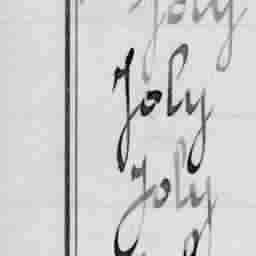 Joly
Joly
Joly